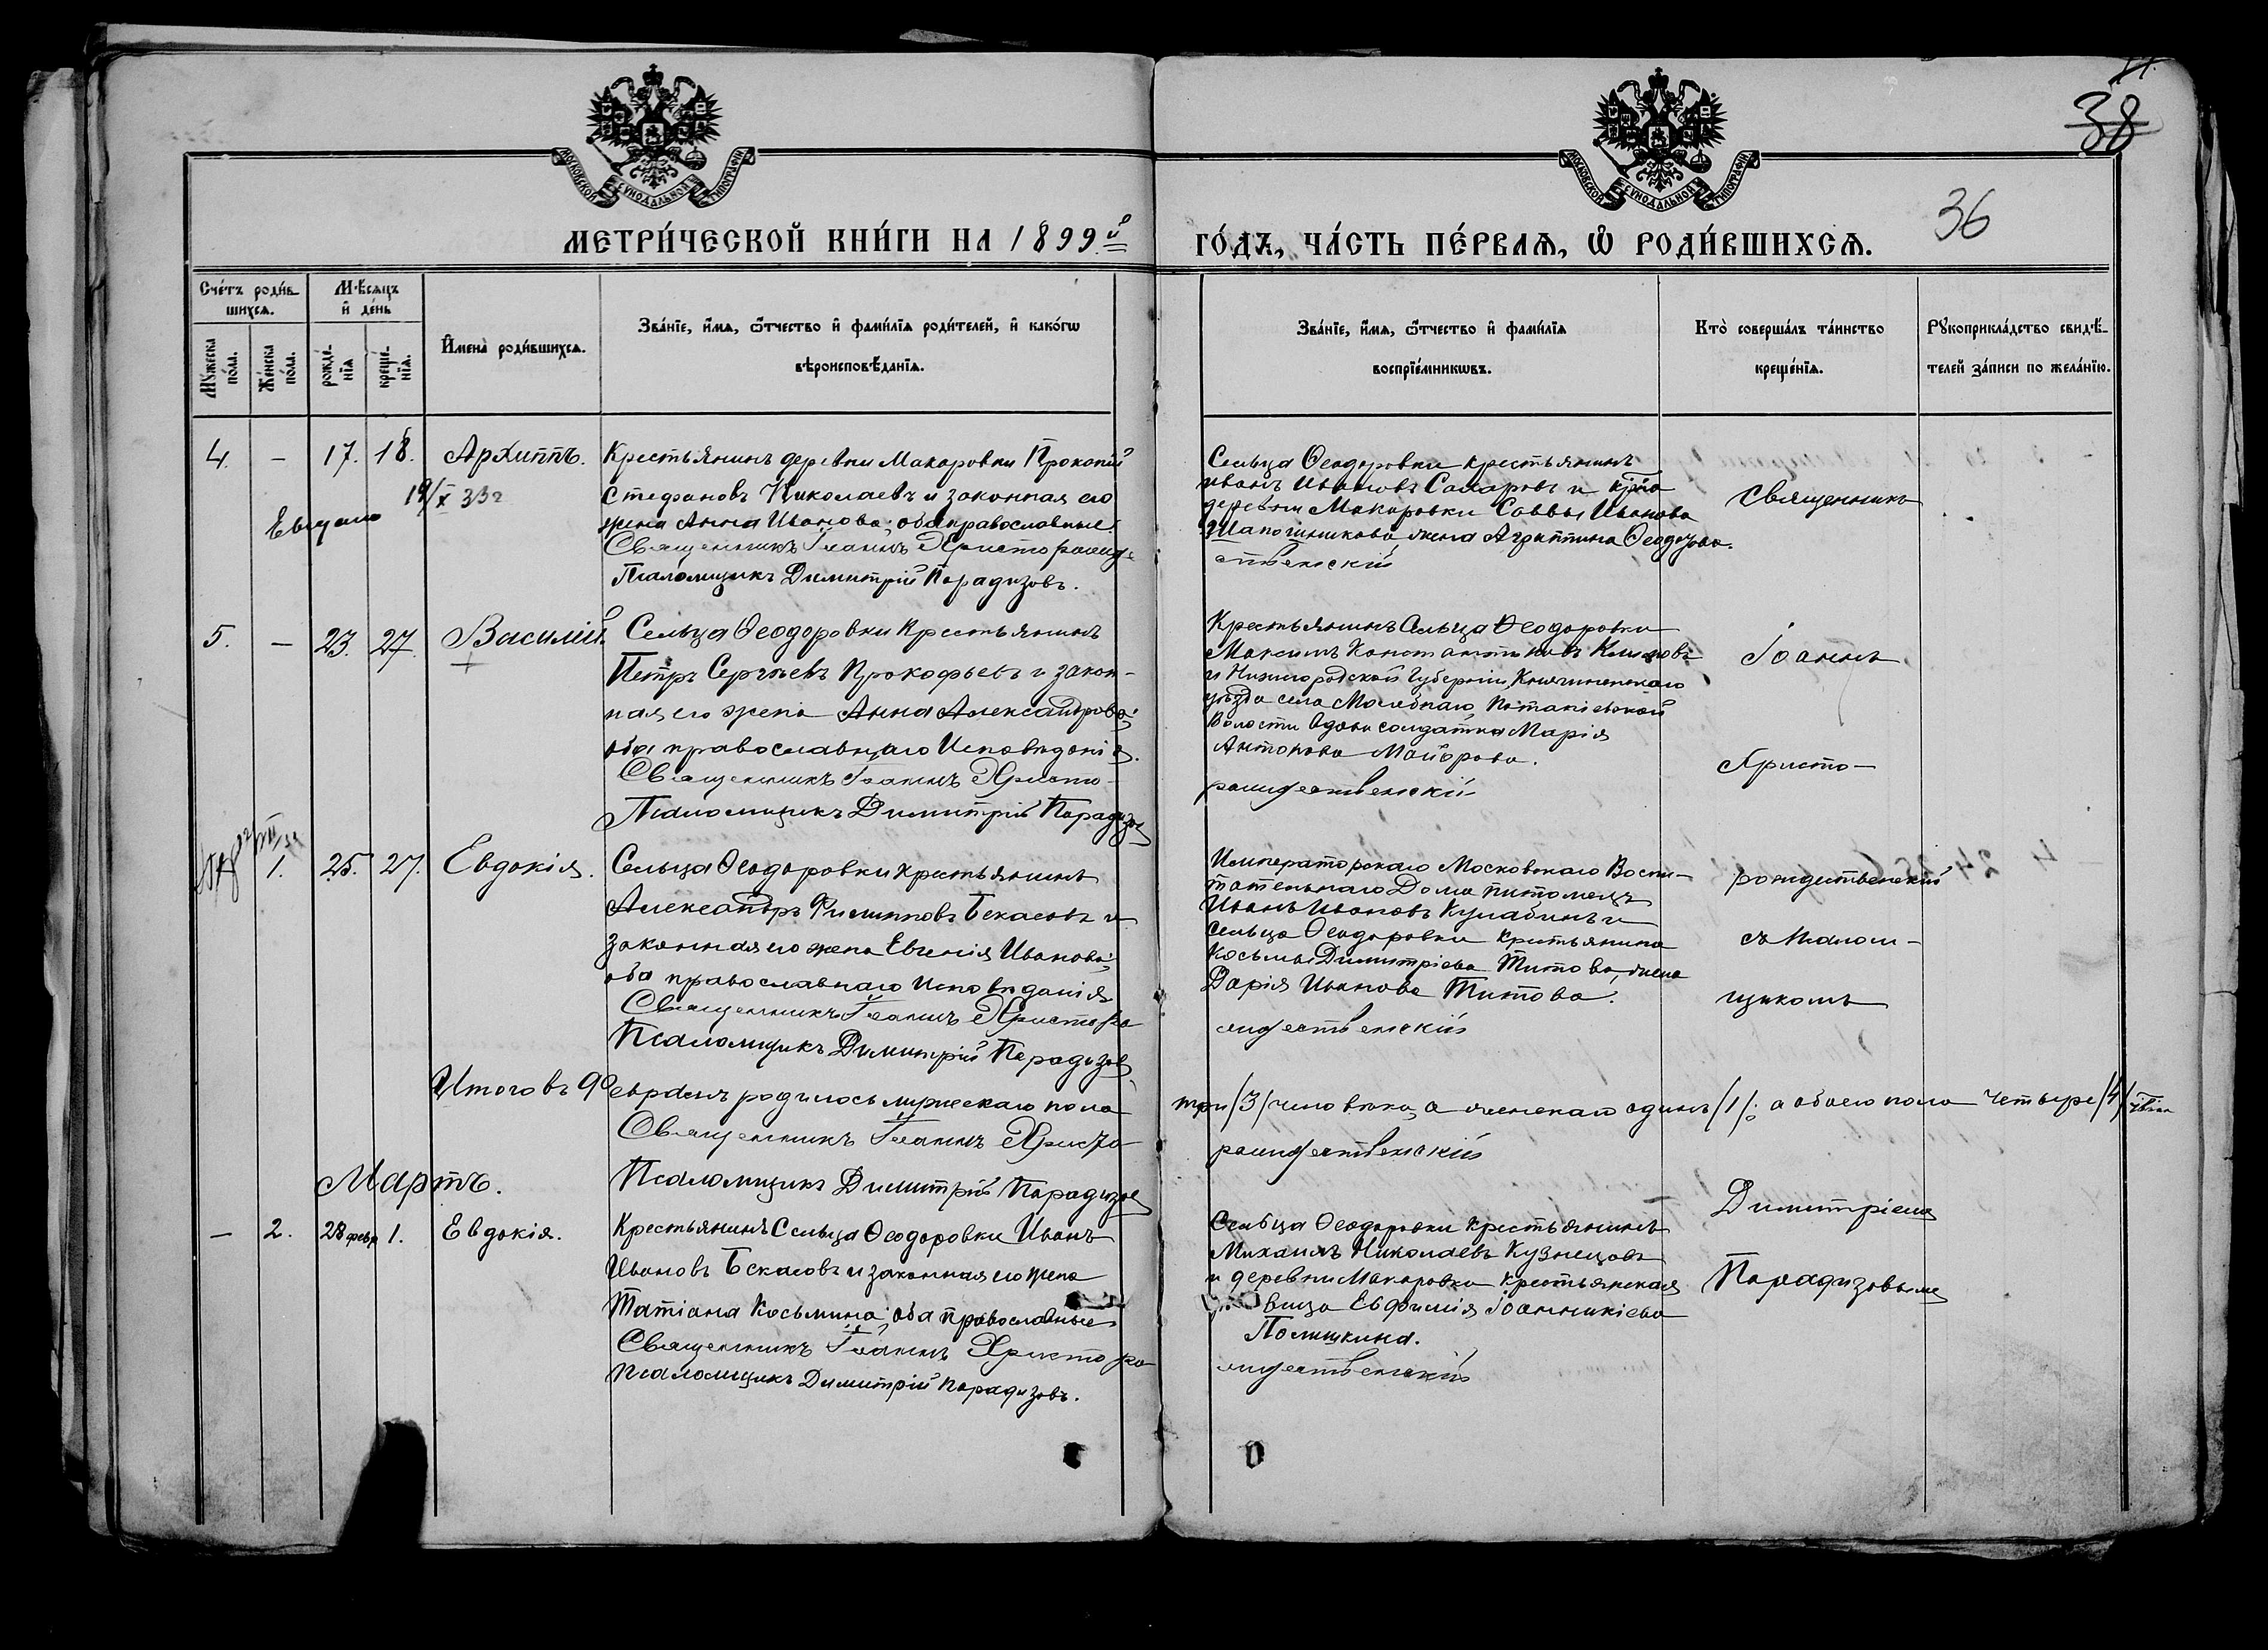 38
36
МОСКОВСКОЙ СѴНОДАЛЬНОЙ ТИПОГРАФІИ
МОСКОВСКОЙ СѴНОДАЛЬНОЙ ТИПОГРАФІИ
МЕТРИ́ЧЕСКОЙ КНИ́ГИ НА 1899й
ГО́ДЪ, ЧА́СТЬ ПЕ́РВАѦ, Ѡ РОДИ́ВШИХСѦ.
Сче́тъ роди́в-
шихсѧ.
Мꙋ́жеска по́ла.
Же́нска по́ла.
Мѣ́сѧцъ
и҆ де́нь
рожде́-нїѧ
креще́-нїѧ.
И҆мена̀ роди́вшихсѧ.
Зва́нїе, и҆́мѧ, ѻ҆́тчество и҆ фами́лїѧ роди́телей, и҆ како́гѡ
вѣроисповѣ́данїѧ.
Зва́нїе, и҆́мѧ, ѻ҆́тчество и҆ фами́лїѧ
воспрїе́мникѡвъ.
Кто̀ соверша́лъ та́инство
креще́нїѧ.
Рꙋкоприкла́дство свидѣ́-
телей за́писи по жела́нїю.
4. – 17. 18. Архиппъ.
Крестьянинъ деревни Макаровки Прокопій
Стефановъ Николаевъ и законная его
жена Анна Иванова; оба православные
Священникъ Іоаннъ Христорожде
Псаломщикъ Димитрій Парадизовъ.
19/X 33г
Сельца Ѳеодоровки крестьянинъ
Иванъ Ивановъ Сахаровъ и
деревни Макаровки Саввы Иванова
Шапошникова жена Агриппина Ѳеодорова.
ственскій
5. – 23. 27. Василій.
Сельца Ѳеодоровки Крестьянинъ
Петръ Сергѣевъ Прокофьевъ и закон-
ная его жена Анна Александрова;
оба православнаго Исповѣданія.
Священникъ Іоаннъ Христо-
Псаломщикъ Димитрій Парадизов
Крестьянинъ Сельца Ѳеодоровки
Максимъ Константиновъ Климовъ
и Нижегородской Губерніи, Княгининскаго
уѣзда села
Волости вдова солдатка Марія
Антонова Майорова.
рождественскій
1. 25. 27. Евдокія.
Сельца Ѳеодоровки крестьянинъ
Александръ Филипповъ Бекасовъ и
законная его жена Евгенія Иванова;
оба православнаго Исповѣданія
Священникъ Іоаннъ Христоро
Псаломщикъ Димитрій Парадизов
Императорскаго Московскаго Воспи-
тательнаго Дома питомецъ
Иванъ Ивановъ и
сельца Ѳеодоровки крестьянина
Косьмы Димитріева Титова, жена
Дарія Иванова Титова.
ждественскій
Священникъ
Іоаннъ
Христо-
рождественскій
съ псалом-
щикомъ
Димитріемъ
Парадизовымъ
Итого въ Февралѣ родилось мужескаго пола
три /3/ человѣка, а женскаго одинъ /1/; а обоего пола четыре /4/
Священникъ Іоаннъ Христо
рождественскій
Псаломщикъ Димитрій Парадизов
Мартъ.
– 2. 28 февр 1. Евдокія.
Крестьянинъ Сельца Ѳеодоровки Иванъ
Ивановъ Бекасовъ и законная его жена
Татіана Косьмина; оба православные
Священникъ Іоаннъ Христоро
Псаломщикъ Димитрій Парадизовъ.
Сельца Ѳеодоровки крестьянинъ
Михаилъ Николаевъ Кузнецовъ
и деревни Макаровки крестьянская
вица Евфимія Іоанникіева
ждественскій